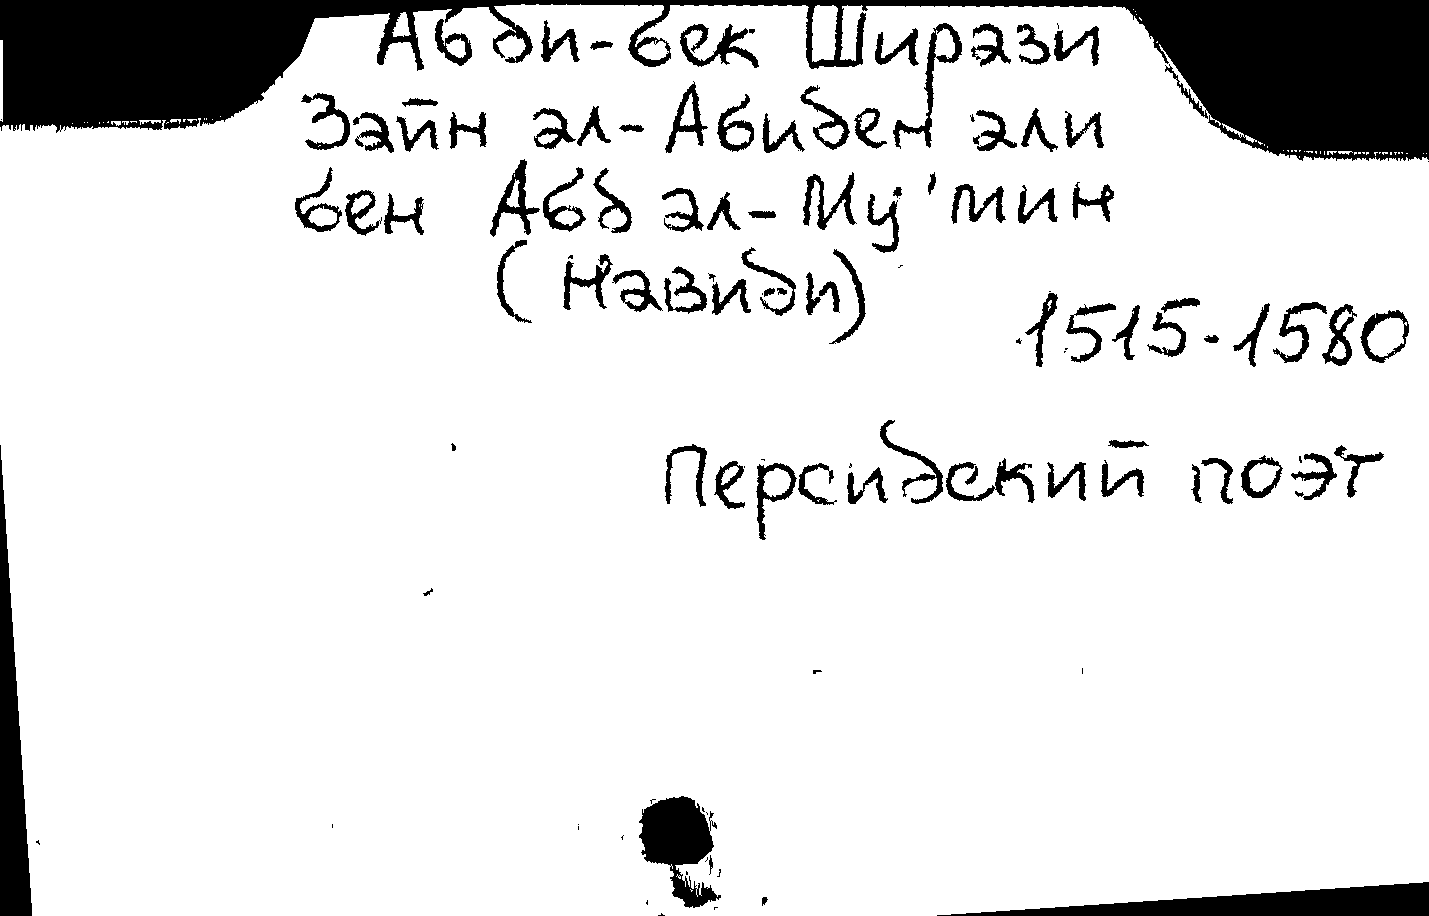 Абди-бек Ширази
Зайн ал-Абиден али
бен Абд ал-Му'мин
(Навиди)
1515-1580
Персидский поэт